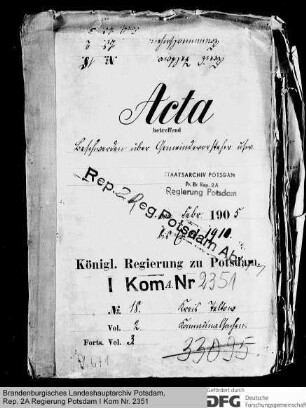 Acta
betreffend
Beschwerden über Gemeindevorsteher usw.
STAATSARCHIV POTSDAM
Pr. Br. Rep. 2A
Regierung Potsdam
Rep. 2 Reg. Potsdam Abt.
Febr. 1905
1910.
Königl. Regierung zu Potsdam.
I Kom. Nr 2351
№ 18. Kreis Teltow
Vol. 2 Kommunalsachen
Forts. Vol. 3 33095
Brandenburgisches Landeshauptarchiv Potsdam,
Rep. 2A Regierung Potsdam I Kom Nr. 2351
gefördert durch
DFG Deutsche
Forschungsgemeinschaft